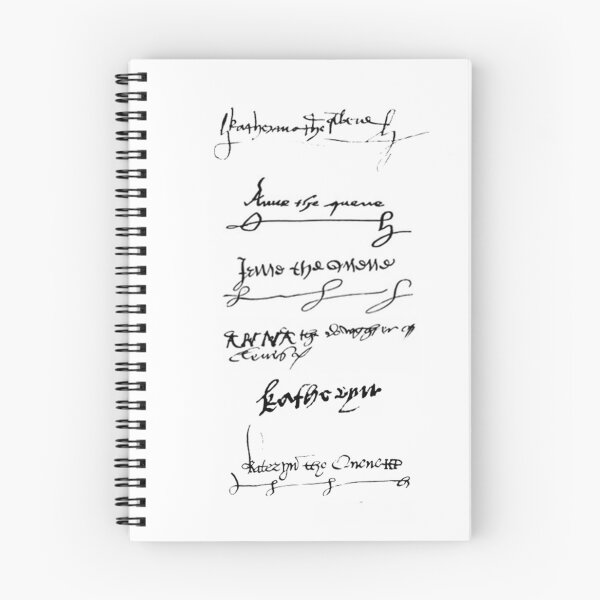 Katherina the Qwene
Anne the quene
Jane the Quene
ANNA the dowgther of
Cleves
Katheryn
Kateryn the Quene KP